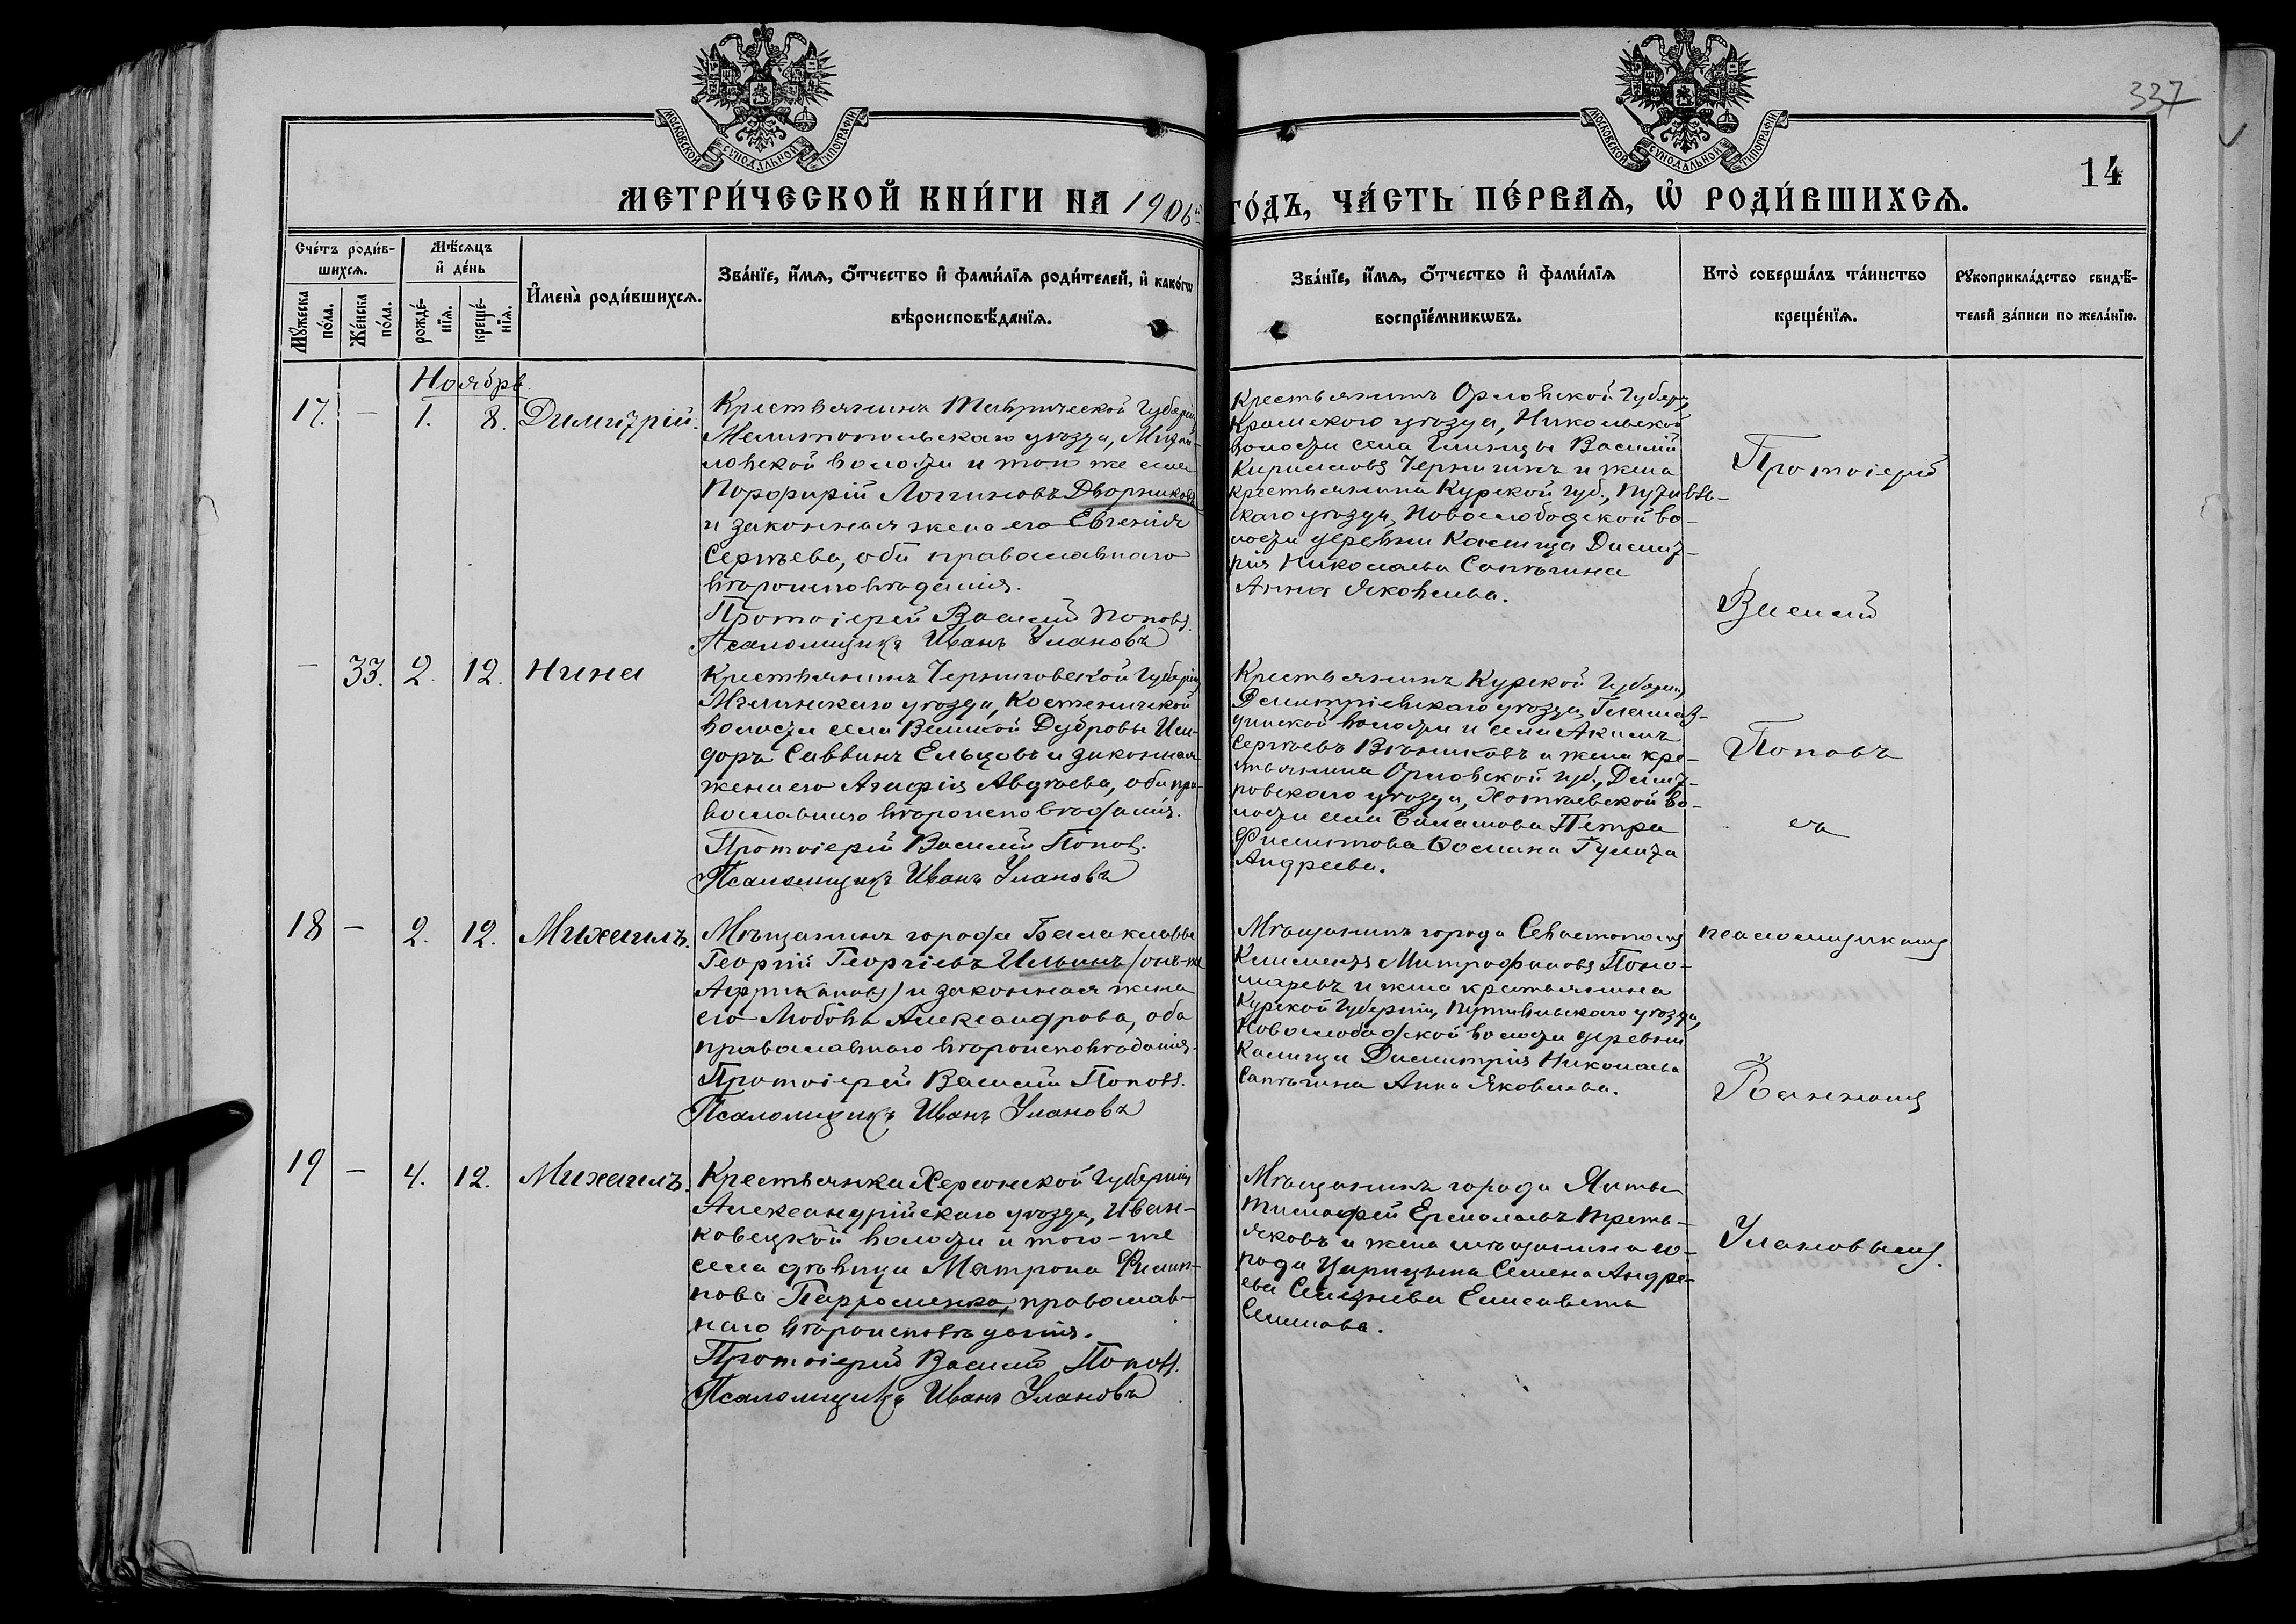 337
МОСКОВСКОЙ СѴНОДАЛЬНОЙ ТИПОГРАФІИ
МОСКОВСКОЙ СѴНОДАЛЬНОЙ ТИПОГРАФІИ
14
МЕТРИ́ЧЕСКОЙ КНИ́ГИ НА 1906й
ГО́ДЪ, ЧА́СТЬ ПЕ́РВАѦ, Ѡ҆ РОДИ́ВШИХСѦ.
Сче́тъ роди́в-
шихсѧ.
Мѣ́сѧцъ
и҆ де́нь
Мꙋ́жеска по́ла.
Же́нска по́ла.
рожде́-
нїѧ.
креще́-
нїѧ.
И҆мена̀ роди́вшихсѧ.
Зва́нїе, и҆́мѧ, ѻ҆́тчество и҆ фами́лїѧ роди́телей, и҆ како́гѡ
вѣроисповѣ́данїѧ.
Зва́нїе, и҆́мѧ, ѻ҆́тчество и҆ фами́лїѧ
воспрїе́мникѡвъ.
Кто̀ соверша́лъ та́инство
креще́нїѧ.
Рꙋкоприкла́дство свидѣ́-
телей за́писи по жела́нїю.
Ноябрь.
17. — 1. 8. Димитрій.
Крестьянинъ Таврической Губерніи
Мелитопольскаго уѣзда, Михай-
ловской волости и того же села
Порфирій Логгиновъ Дворниковъ
и законная жена его Евгенія
Сергѣева, оба православнаго
вѣроисповѣданія.
Протоіерей Василій Поповъ.
Псаломщикъ Иванъ Улановъ
Крестьянинъ Орловской Губерніи
Кромского уѣзда, Никольской
волости села Василій
Кирилловъ Чернигинъ и жена
крестьянина Курской губ., Путивль-
скаго уѣзда, Новослободской во-
лости деревни Калища Димит-
рія Николаева Сапѣгина
Анна Яковлева.
— 33. 2. 12. Нина
Крестьянинъ Черниговской Губерніи
Мглинскаго уѣзда, Костеничской
волости села Великой Дубровы Иси-
доръ Саввинъ Ельцовъ и законная
жена его Агафія Авдѣева, оба пра-
вославнаго вѣроисповѣданія.
Протоіерей Василій Попов.
Псаломщикъ Иванъ Улановъ
Крестьянинъ Курской Губерніи
Дмитріевскаго уѣзда,
волости и села Акимъ
Сергѣевъ Вѣниковъ и жена кре-
стьянина Орловской губ., Дмит-
ровскаго уѣзда, Хотѣевской во-
лости села Балашова Петра
Филиппова Ѳомина
Андреева.
18 — 2. 12. Михаилъ.
Мѣщанинъ города Балаклавы
Георгій Георгіевъ Ильинъ (онъ-же
Африкановъ) и законная жена
его Любовь Александрова, оба
православнаго вѣроисповѣданія.
Протоіерей Василій Поповъ.
Псаломщикъ Иванъ Улановъ
Мѣщанинъ города Севастополя
Климентъ Митрофановъ Поно-
маревъ и жена крестьянина
Курской Губерніи, Путивльскаго уѣзда,
Новослободской волости деревни
Калища Димитрія Николаева
Сапѣгина Анна Яковлева.
19 — 4. 12. Михаилъ.
Крестьянка Херсонской Губерніи
Александрійскаго уѣзда, Иван-
ковецкой волости и того-же
села дѣвица Матрона Филип-
пова Пархоменко, православ-
наго вѣроисповѣданія.
Протоіерей Василій Поповъ.
Псаломщикъ Иванъ Улановъ
Мѣщанинъ города Ялты
Тимофей Ермолаевъ Треть-
яковъ и жена мѣщанина го-
рода Царицына Семена Андре-
ева Селезнева Елисавета
Семенова.
Протоіерей
Василій
Поповъ
съ
псаломщикомъ
Иваномъ
Улановымъ.